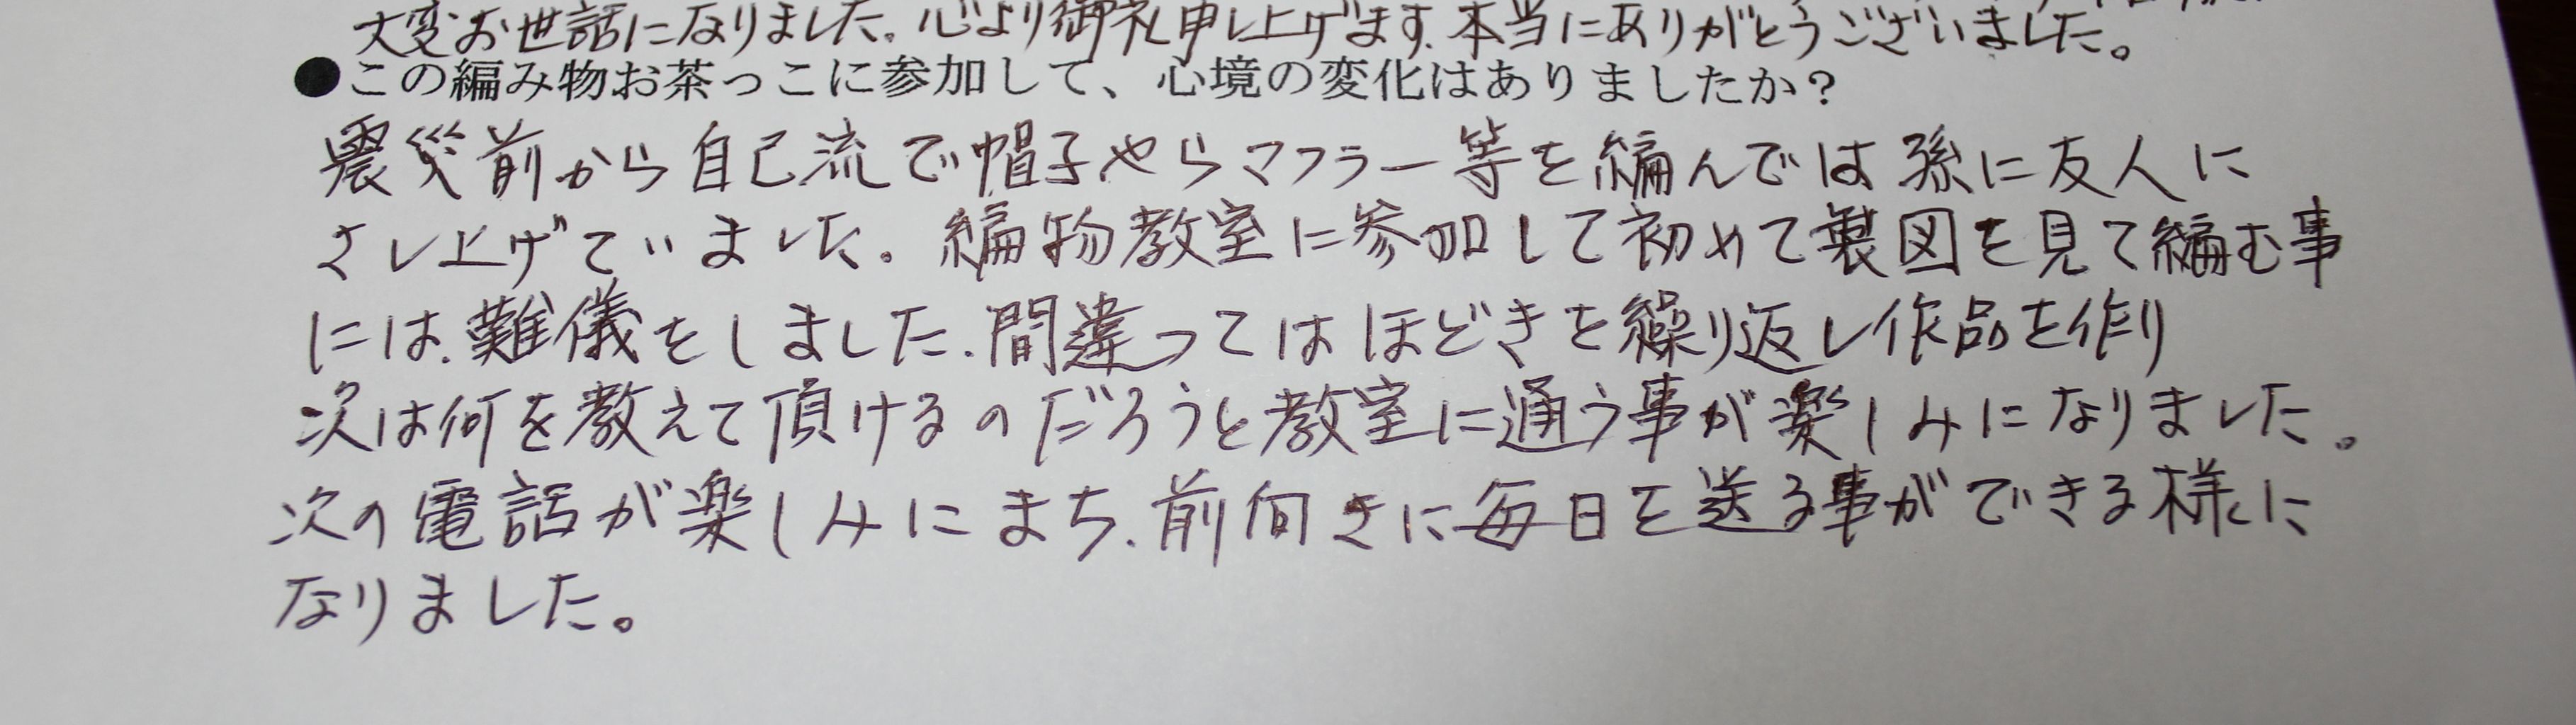 大変お世話になりました。心より御礼申し上げます。本当にありがとうございました。
●この編み物お茶っこに参加して、心境の変化はありましたか?
震災前から自己流で帽子やらマフラー等を編んでは孫に友人に
さし上げていました。編物教室に参加して初めて製図を見て編む事
には、難儀をしました、間違ってはほどきを繰り返し作品を作り
次は何を教えて頂けるのだろうと教室に通う事が楽しみになりました。
次の電話が楽しみにまち、前向きに毎日を送る事ができる様に
なりました。